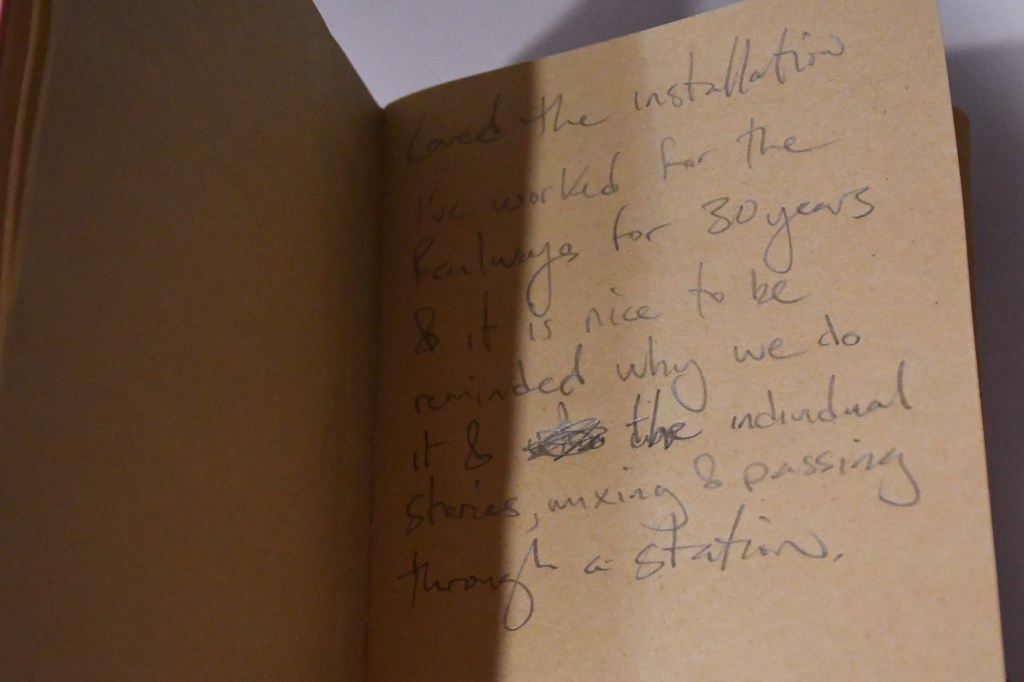 Loved the installation
I've worked for the
Railways for 30 years
& it is nice to be
reminded why we do
it & the individual
stories, mixing & passing
through a station.